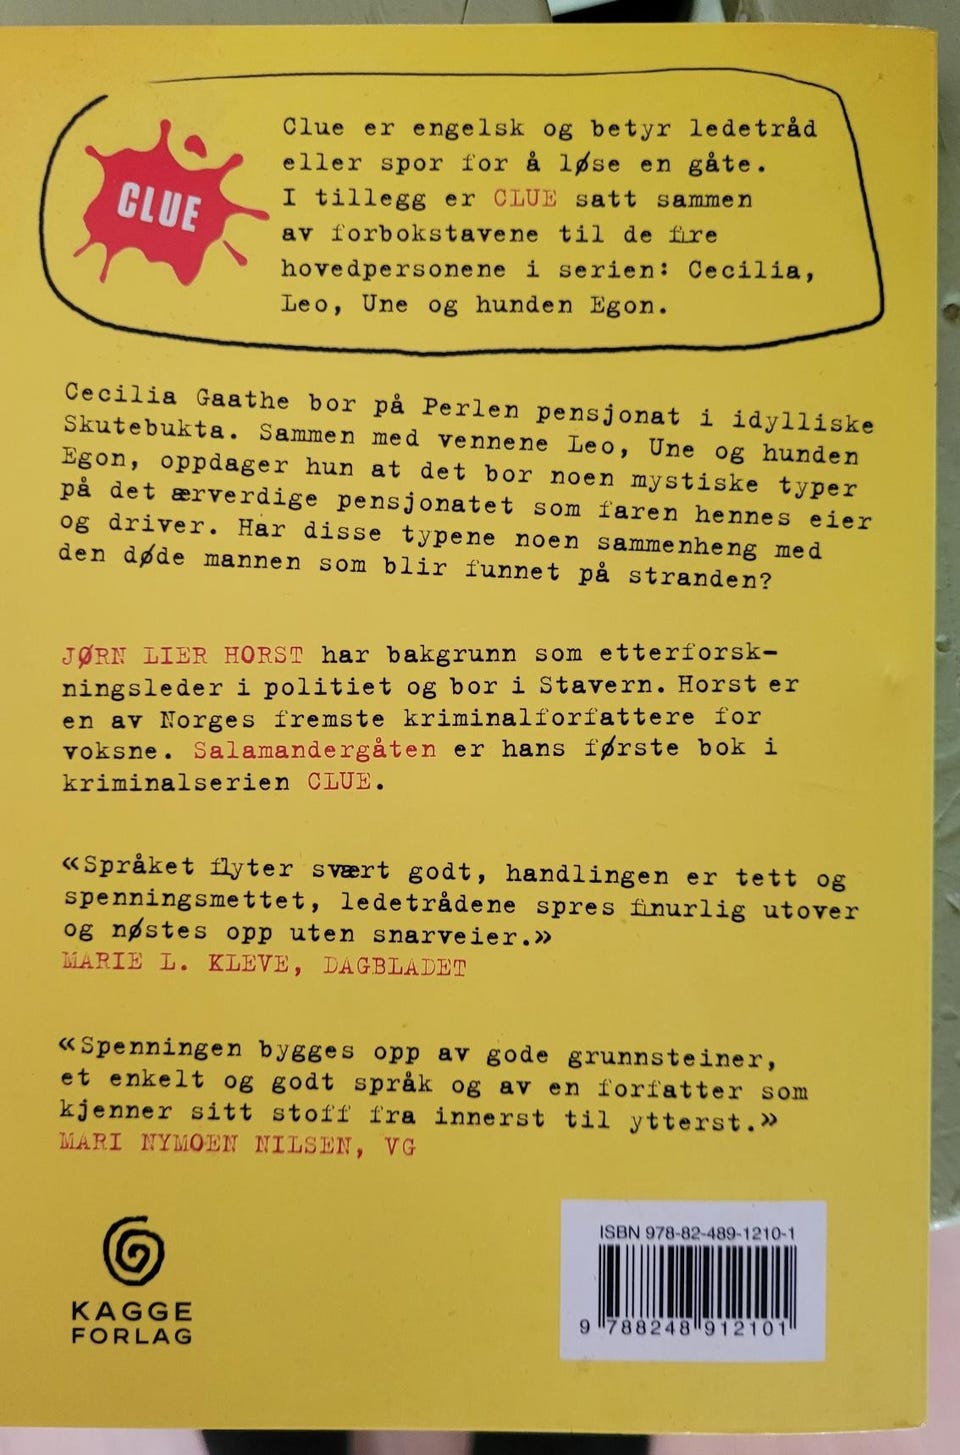 CLUE
Clue er engelsk og betyr ledetråd
eller spor for å løse en gåte.
I tillegg er CLUE satt sammen
av forbokstavene til de fire
hovedpersonene i serien: Cecilia,
Leo, Une og hunden Egon.
Cecilia Gaathe bor på Perlen pensjonat i idylliske
Skutebukta. Sammen med vennene Leo, Une og hunden
Egon, oppdager hun at det bor noen mystiske typer
på det ærverdige pensjonatet som faren hennes eier
og driver. Har disse typene noen sammenheng med
den døde mannen som blir funnet på stranden?
JØRN LIER HORST har bakgrunn som etterforsk-
ningsleder i politiet og bor i Stavern. Horst er
en av Norges fremste kriminalforfattere for
voksne. Salamandergåten er hans første bok i
kriminalserien CLUE.
«Språket flyter svært godt, handlingen er tett og
spenningsmettet, ledetrådene spres finurlig utover
og nøstes opp uten snarveier.»
MARIE L. KLEVE, DAGBLADET
«Spenningen bygges opp av gode grunnsteiner,
et enkelt og godt språk og av en forfatter som
kjenner sitt stoff fra innerst til ytterst.»
MARI NYMOEN NILSEN, VG
KAGGE
FORLAG
ISBN 978-82-489-1210-1
9 788248 912101